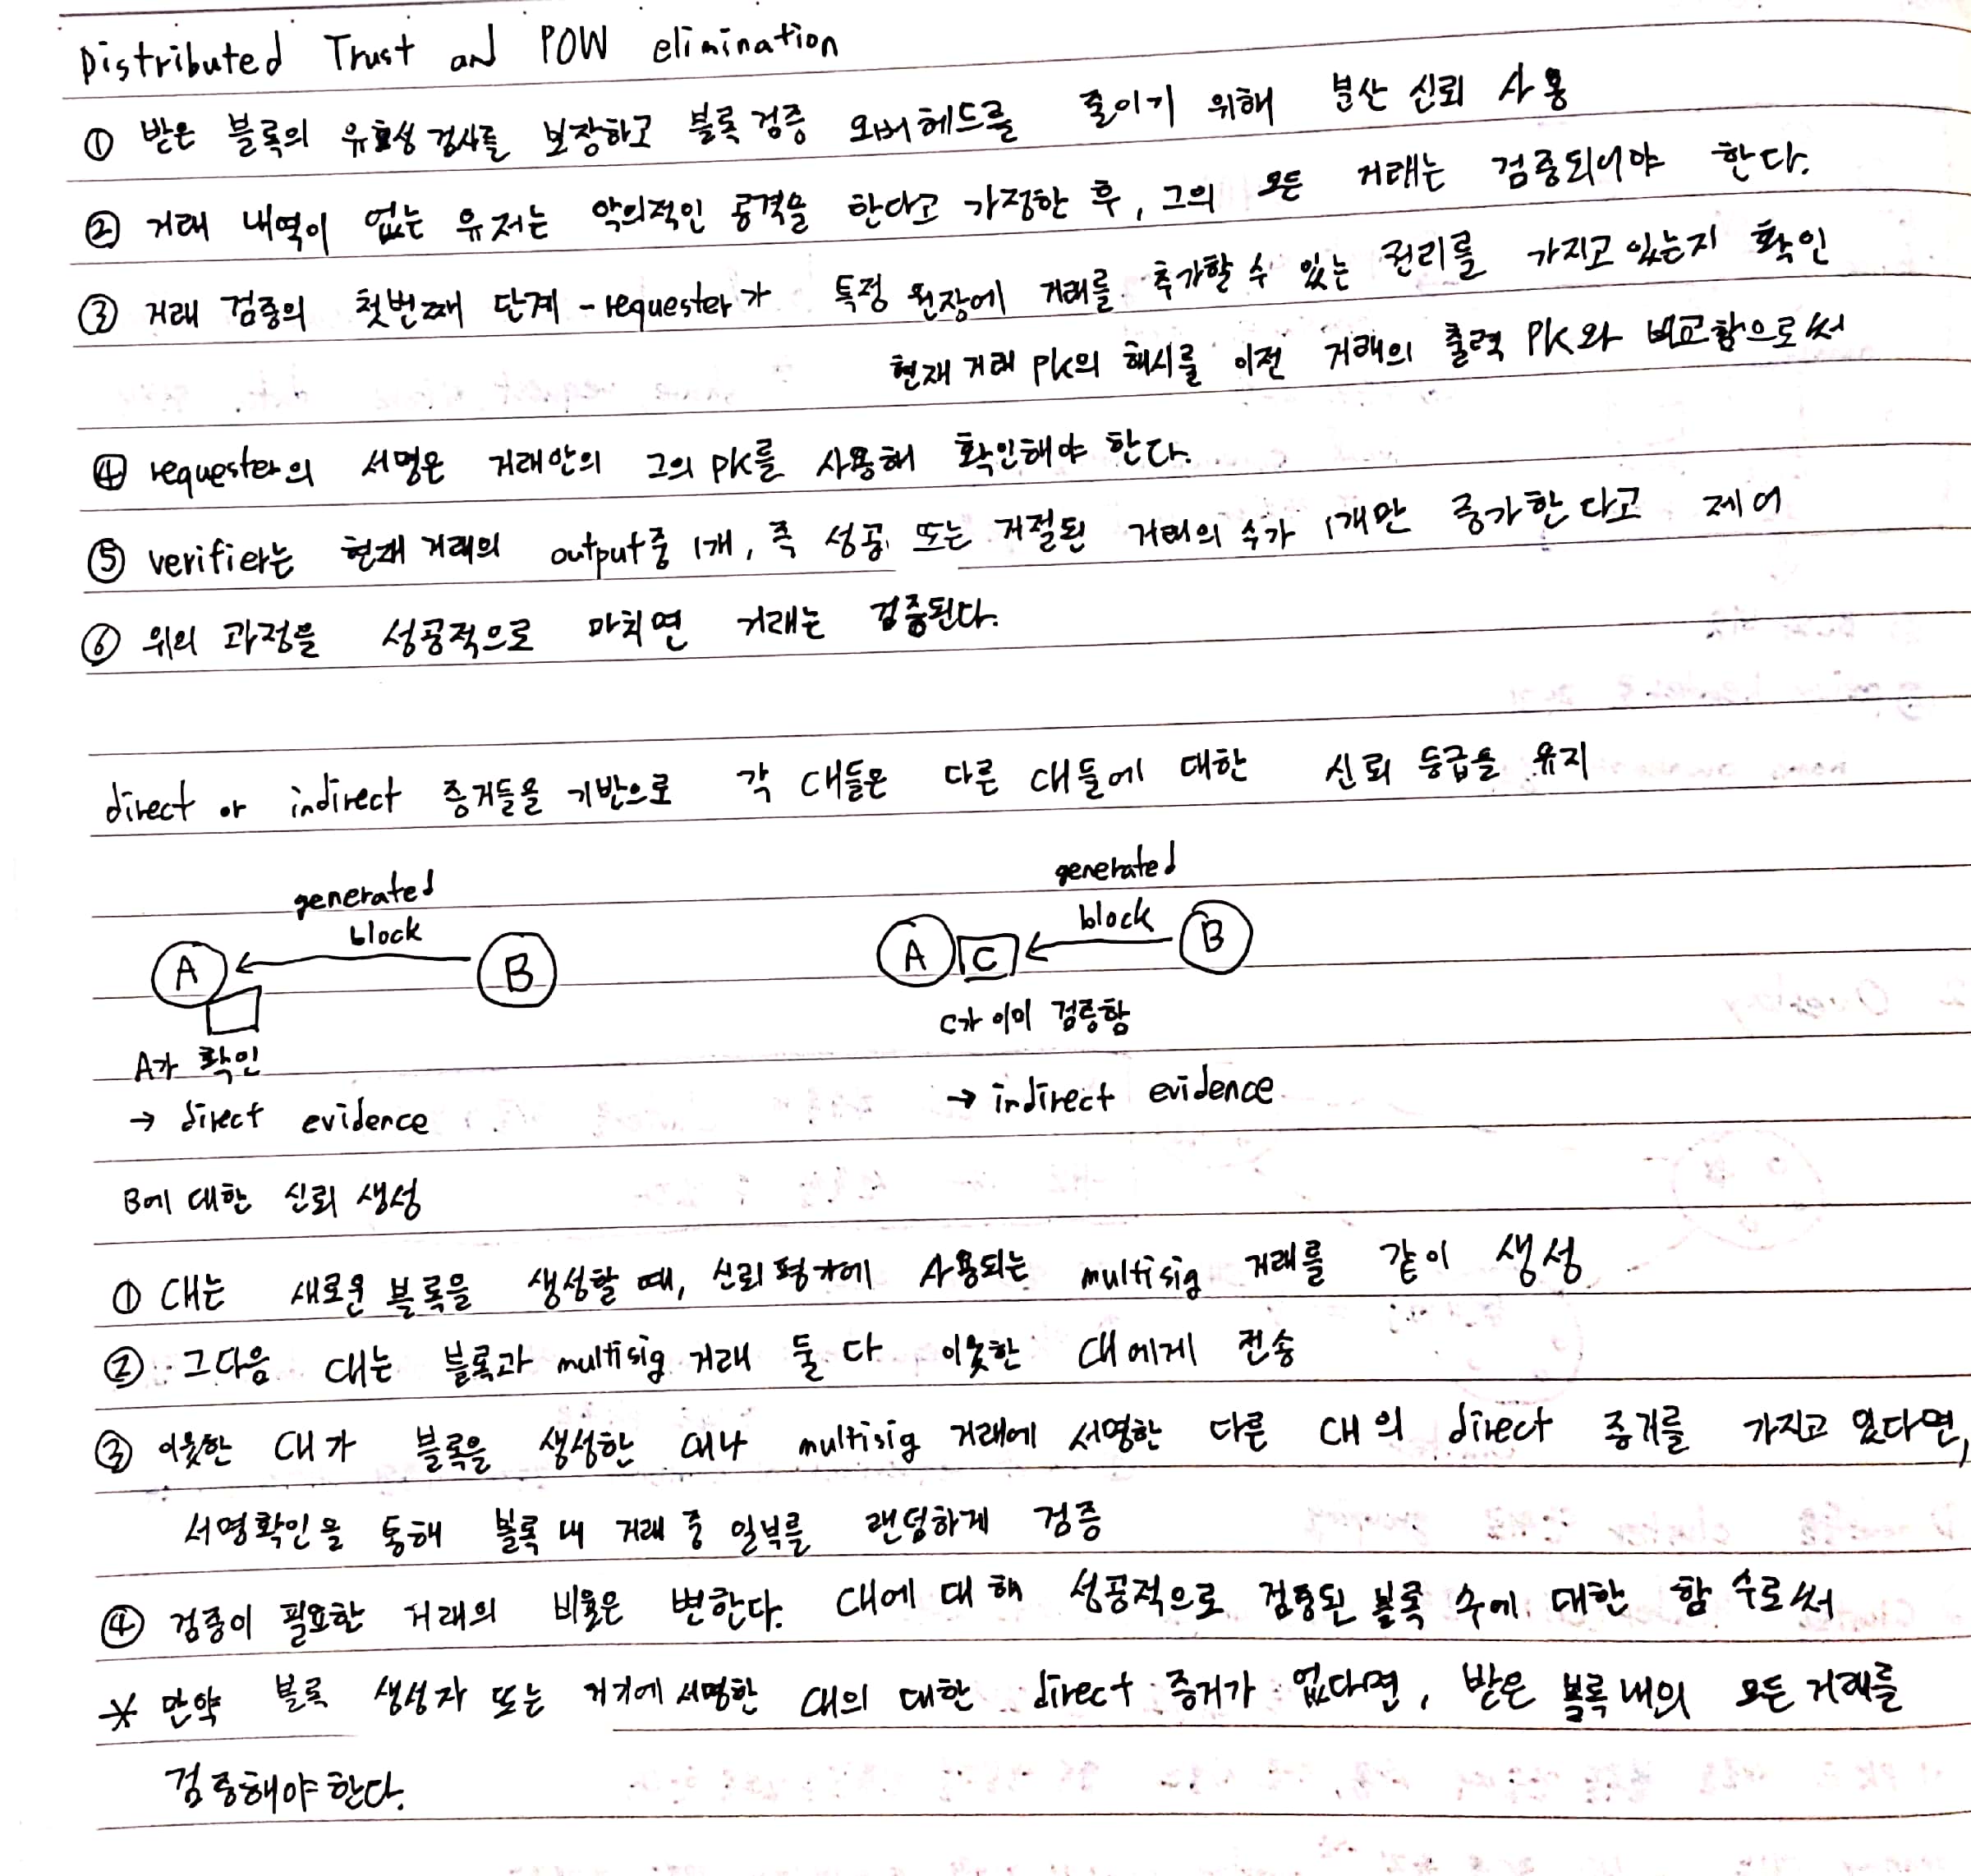 Distributed Trust and POW elimination
① 받은 블록의 유효성 검사를 보장하고 블록 검증 오버헤드를 줄이기 위해 분산 신뢰 사용
② 거래 내역이 없는 유저는 악의적인 공격을 한다고 가정한 후, 그의 모든 거래는 검증되어야 한다.
③ 거래 검증의 첫번째 단계 - requester가 특정 원장에 거래를 추가할 수 있는 권리를 가지고 있는지 확인
현재 거래 PK의 해시를 이전 거래의 출력 PK와 비교함으로써
④ requester의 서명은 거래안의 그의 PK를 사용해 확인해야 한다.
⑤ verifier는 현재 거래의 output중 1개, 즉 성공 또는 거절된 거래의 수가 1개만 증가한다고 제어
⑥ 위의 과정을 성공적으로 마치면 거래는 검증된다.
direct or indirect 증거들을 기반으로 각 CH들은 다른 CH들에 대한 신뢰 등급을 유지
generated block
A B
A가 확인
→ direct evidence
generated block
A C B
C가 이미 검증함
→ indirect evidence
B에 대한 신뢰 생성
① CH는 새로운 블록을 생성할 때, 신뢰 평가에 사용되는 multisig 거래를 같이 생성
② 그다음 CH는 블록과 multisig 거래 둘 다 이웃한 CH에게 전송
③ 이웃한 CH가 블록을 생성한 CH나 multisig 거래에 서명한 다른 CH의 direct 증거를 가지고 있다면,
서명확인을 통해 블록 내 거래 중 일부를 랜덤하게 검증
④ 검증이 필요한 거래의 비율은 변한다. CH에 대해 성공적으로 검증된 블록 수에 대한 함수로써
* 만약 블록 생성자 또는 거기에 서명한 CH의 대한 direct 증거가 없다면, 받은 블록 내의 모든 거래를
검증해야 한다.